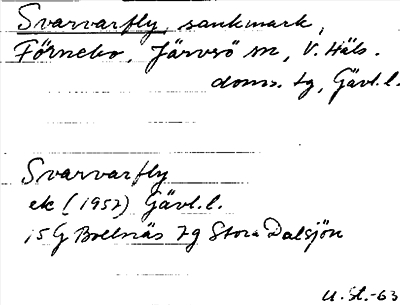 Svarvarfly, sankmark,
Förnebo, Järvsö sn, V. Häls.
doms. tg, Gävl. l.
Svarvarfly
ek (1957) Gävl. l.
15G Bollnäs 7g Stora Dalsjön
U. St. -63